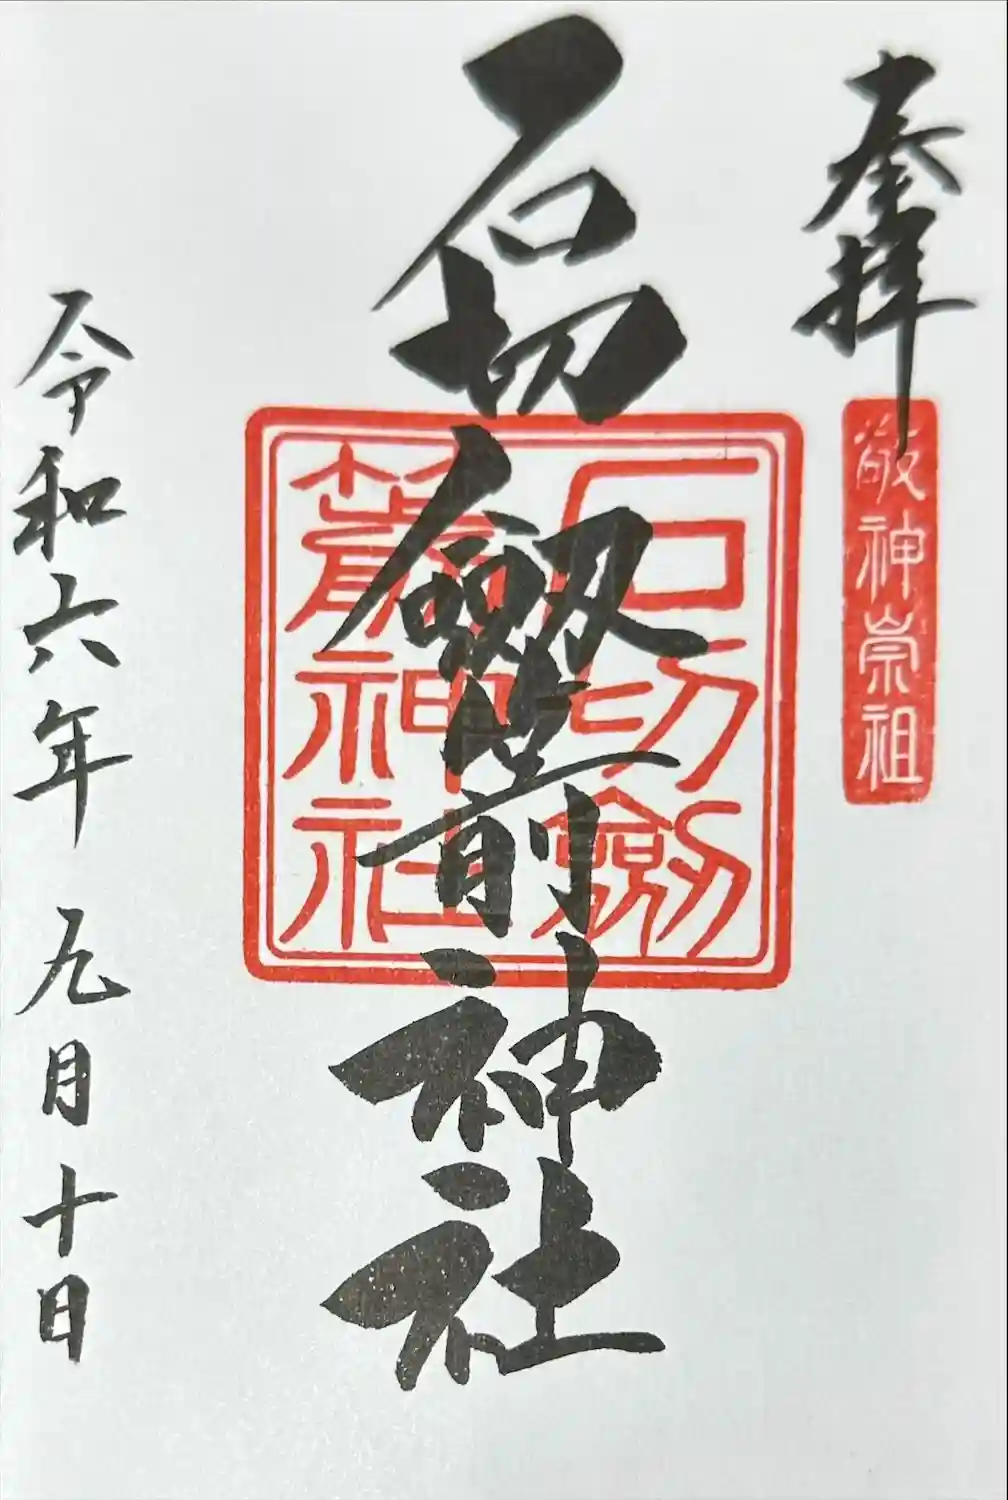 奉拝
敬神崇祖
石切劔箭神社
石切劔
箭神社
令和六年九月十日